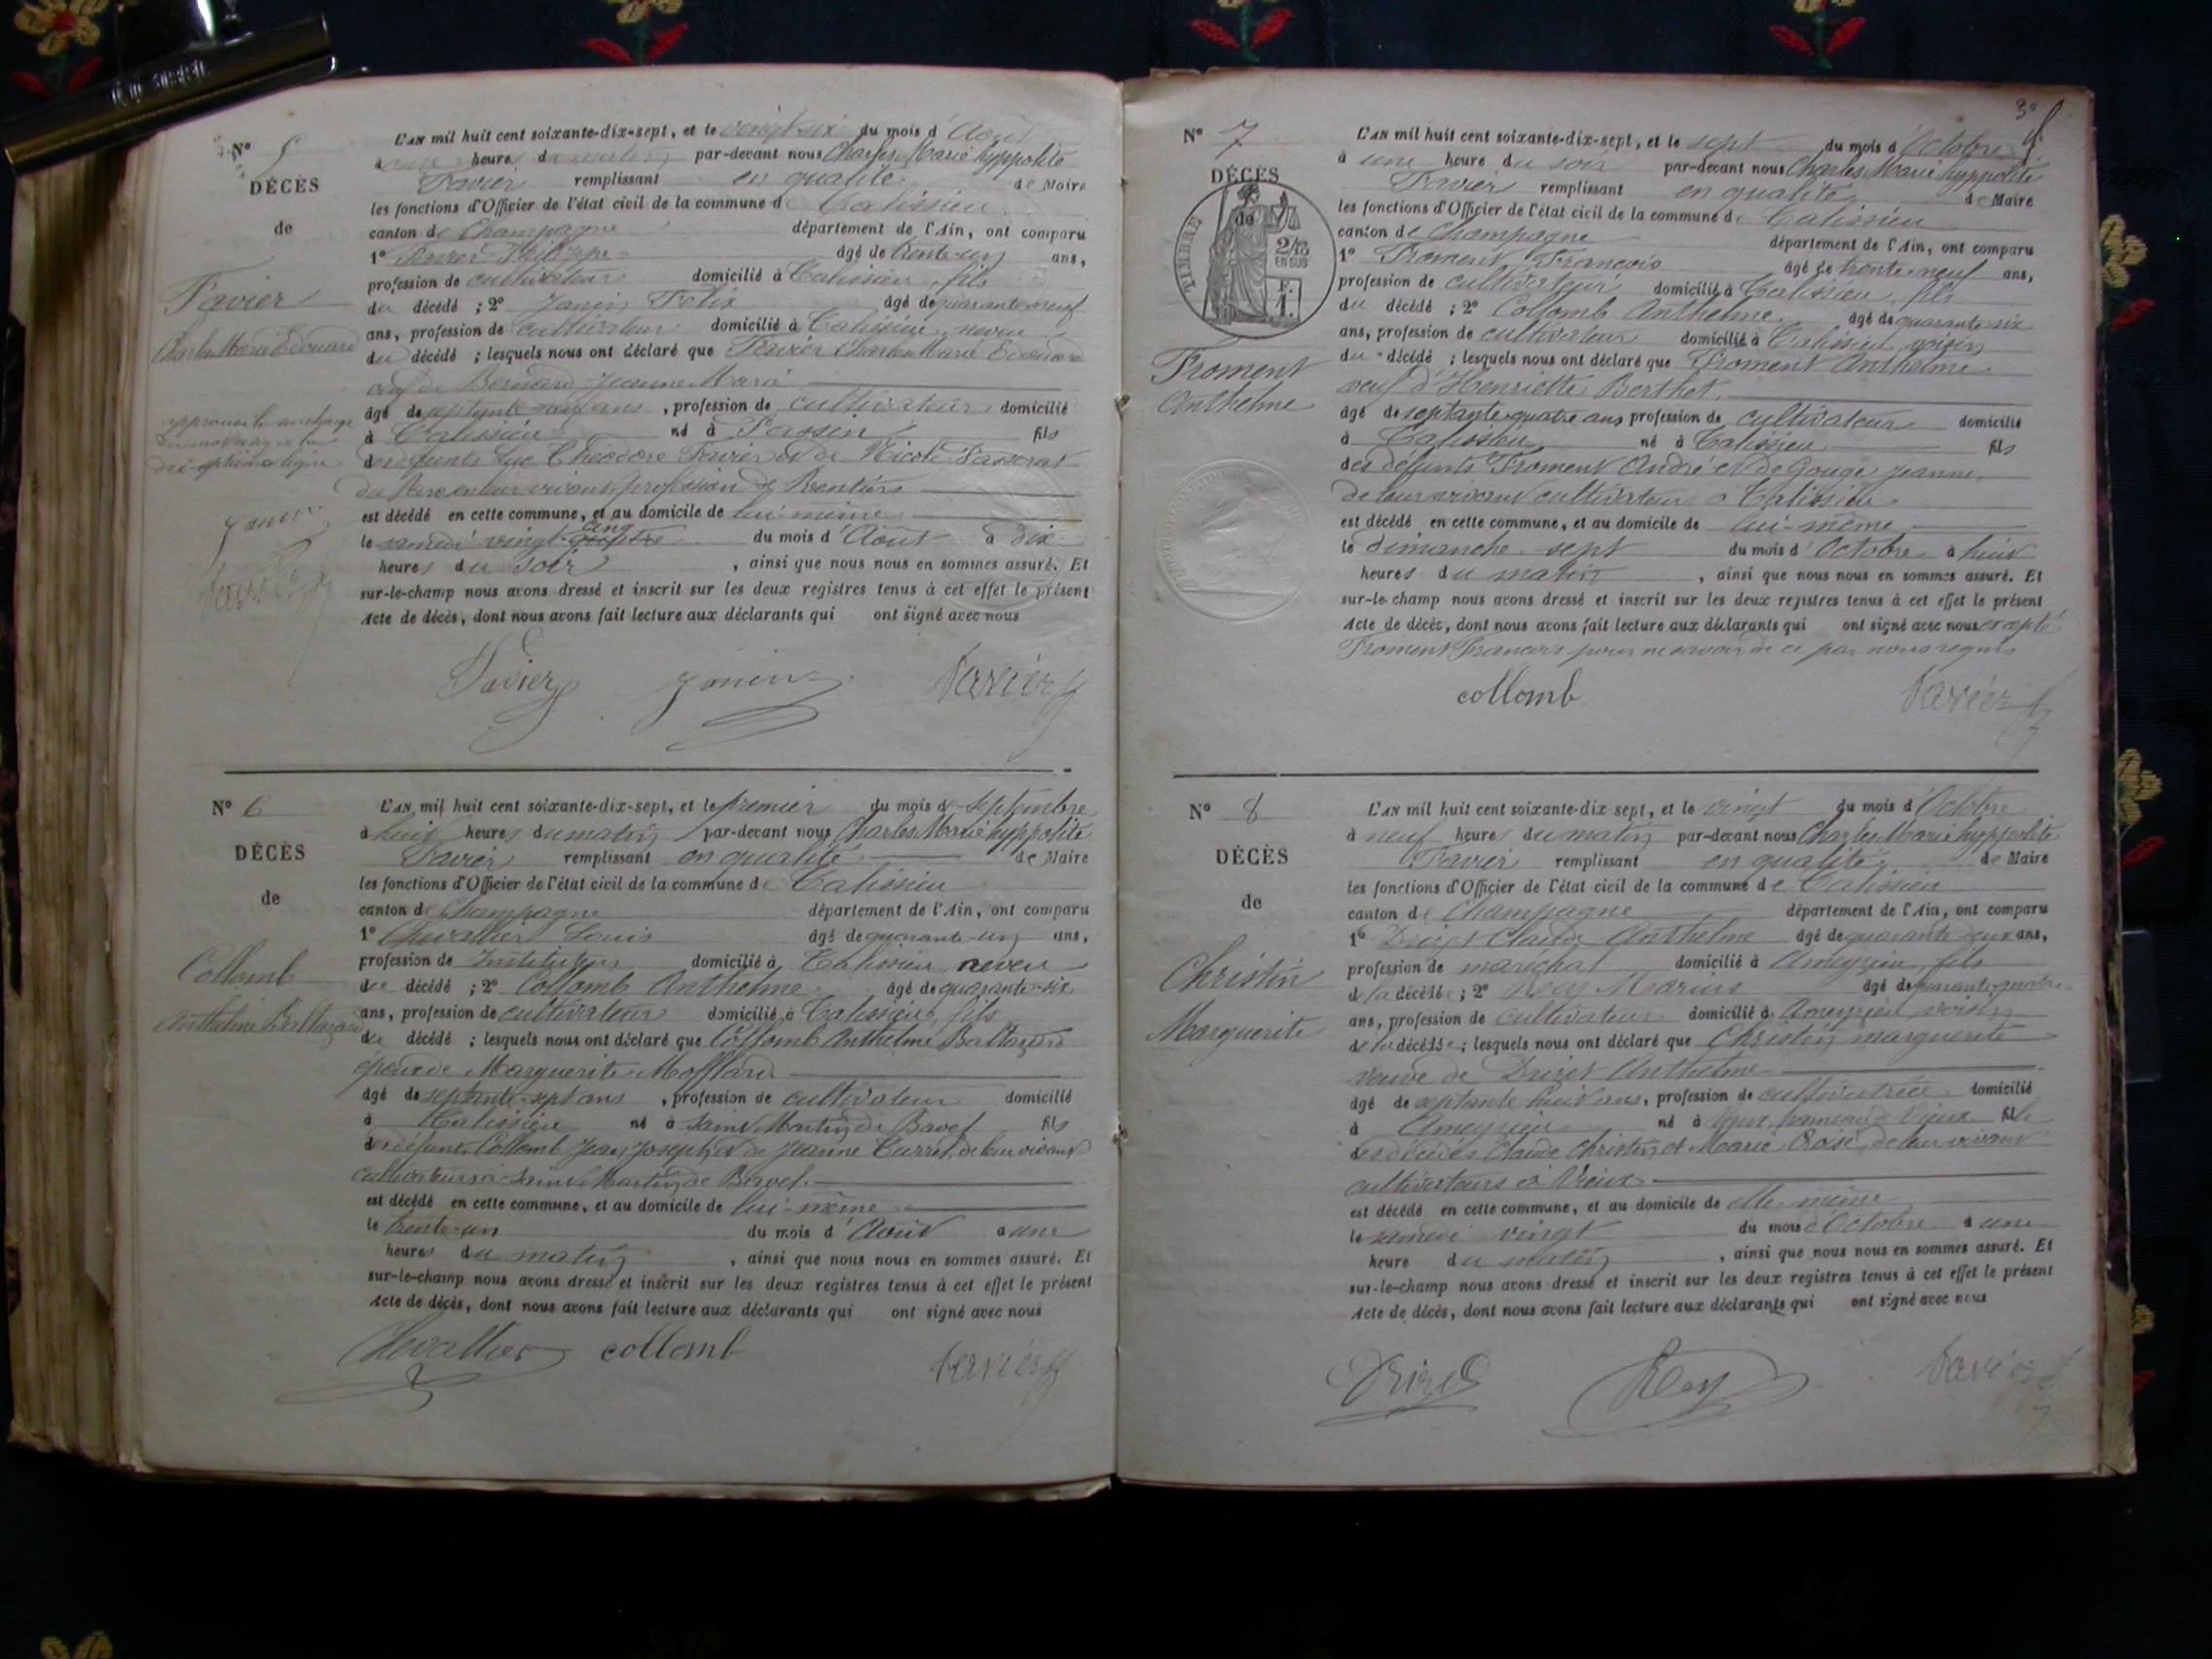 N° 5
DÉCÈS
de
Favier
Charles Marie Edouard
L'AN mil huit cent soixante-dix-sept, et le vingt six du mois d'Août
heure du matin par-devant nous Charles Marie hyppolite
Favier remplissant en qualité de Maire
les fonctions d'Officier de l'état civil de la commune de Talissieu
canton de Champagne département de l'Ain, ont comparu
1° Favier Philippe âgé de trente-un ans,
profession de cultivateur domicilié à Talissieu, fils
du décédé ; 2° Janin Félix âgé de quarante neuf
ans, profession de cultivateur domicilié à Talissieu, neveu
du décédé ; lesquels nous ont déclaré que Favier Charles Marie Edouard
veuf de Bernard Jeanne Marie
âgé de septante ans, profession de cultivateur domicilié
à Talissieu né à fils
Luc Théodore Favier et de Nicole Passerat
vivant profession de Rentiers
est décédé en cette commune, et au domicile de lui-même
le samedi vingt quatre cinq du mois d'Août à dix
heures du soir, ainsi que nous nous en sommes assuré. Et
sur-le-champ nous avons dressé et inscrit sur les deux registres tenus à cet effet le présent
Acte de décès, dont nous avons fait lecture aux déclarants qui ont signé avec nous
Janin
Favier
Favier Janin Favier
N° 6
DÉCÈS
de
Collomb
Anthelme Baltazard
L'AN mil huit cent soixante-dix-sept, et le premier du mois de Septembre
à huit heures du matin par-devant nous Charles Marie hyppolite
Favier remplissant en qualité de Maire
les fonctions d'Officier de l'état civil de la commune de Talissieu
canton de Champagne département de l'Ain, ont comparu
1° Chevallier Louis âgé de quarante-un ans,
profession de Instituteur domicilié à Talissieu neveu
du décédé ; 2° Collomb Anthelme âgé de quarante-six
ans, profession de cultivateur domicilié à Talissieu, fils
du décédé ; lesquels nous ont déclaré que Collomb Anthelme Baltazard
époux de Marguerite Mofflard
âgé de septante-sept ans, profession de cultivateur domicilié
à Talissieu né à Saint Martin de Bavel fils
des défunts Collomb Jean Joseph et de Jeanne Curret, de leur vivant
cultivateurs à Saint Martin de Bavel
est décédé en cette commune, et au domicile de lui-même
le trente-un du mois d'Août à une
heures du matin, ainsi que nous nous en sommes assuré. Et
sur-le-champ nous avons dressé et inscrit sur les deux registres tenus à cet effet le présent
Acte de décès, dont nous avons fait lecture aux déclarants qui ont signé avec nous
Chevallier collomb Favier
N° 7
DÉCÈS
de
TIMBRE
2/10
EN SUS
F.
1.
Froment
Anthelme
L'AN mil huit cent soixante-dix-sept, et le sept du mois d'Octobre
à une heure du soir par-devant nous Charles Marie hyppolite
Favier remplissant en qualité de Maire
les fonctions d'Officier de l'état civil de la commune de Talissieu
canton de Champagne département de l'Ain, ont comparu
1° Froment François âgé de trente-neuf ans,
profession de cultivateur domicilié à Talissieu, fils
du décédé ; 2° Collomb Anthelme âgé de quarante-six
ans, profession de cultivateur domicilié à Talissieu, voisin
du décédé ; lesquels nous ont déclaré que Froment Anthelme
veuf d'Henriette Berthet
âgé de septante-quatre ans profession de cultivateur domicilié
à Talissieu né à Talissieu fils
des défunts Froment André et de Gouge Jeanne,
de leur vivant cultivateurs à Talissieu
est décédé en cette commune, et au domicile de lui-même
le dimanche sept du mois d'Octobre à huit
heures du matin, ainsi que nous nous en sommes assuré. Et
sur-le-champ nous avons dressé et inscrit sur les deux registres tenus à cet effet le présent
Acte de décès, dont nous avons fait lecture aux déclarants qui ont signé avec nous excepté
Froment François pour ne savoir de ce par nous requis
collomb Favier
N° 8
DÉCÈS
de
Christin
Marguerite
L'AN mil huit cent soixante-dix-sept, et le vingt du mois d'Octobre
à neuf heures du matin par-devant nous Charles Marie hyppolite
Favier remplissant en qualité de Maire
les fonctions d'Officier de l'état civil de la commune de Talissieu
canton de Champagne département de l'Ain, ont comparu
1° Drizet Claude Anthelme âgé de quarante-deux ans,
profession de maréchal domicilié à Ameyzieu, fils
de la décédée ; 2° Rey Marius âgé de quarante-quatre
ans, profession de cultivateur domicilié à Ameyzieu, voisin
de la décédée ; lesquels nous ont déclaré que Christin marguerite
veuve de Drizet Anthelme
âgé de septante huit ans, profession de cultivatrice domicilié
à Ameyzieu né à Vieux fille
des décédés Claude Christin et Marie de leur vivant
cultivateurs à Vieux
est décédé en cette commune, et au domicile de elle-même
le samedi vingt du mois d'Octobre à une
heure du matin, ainsi que nous nous en sommes assuré. Et
sur-le-champ nous avons dressé et inscrit sur les deux registres tenus à cet effet le présent
Acte de décès, dont nous avons fait lecture aux déclarants qui ont signé avec nous
Drizet Rey Favier